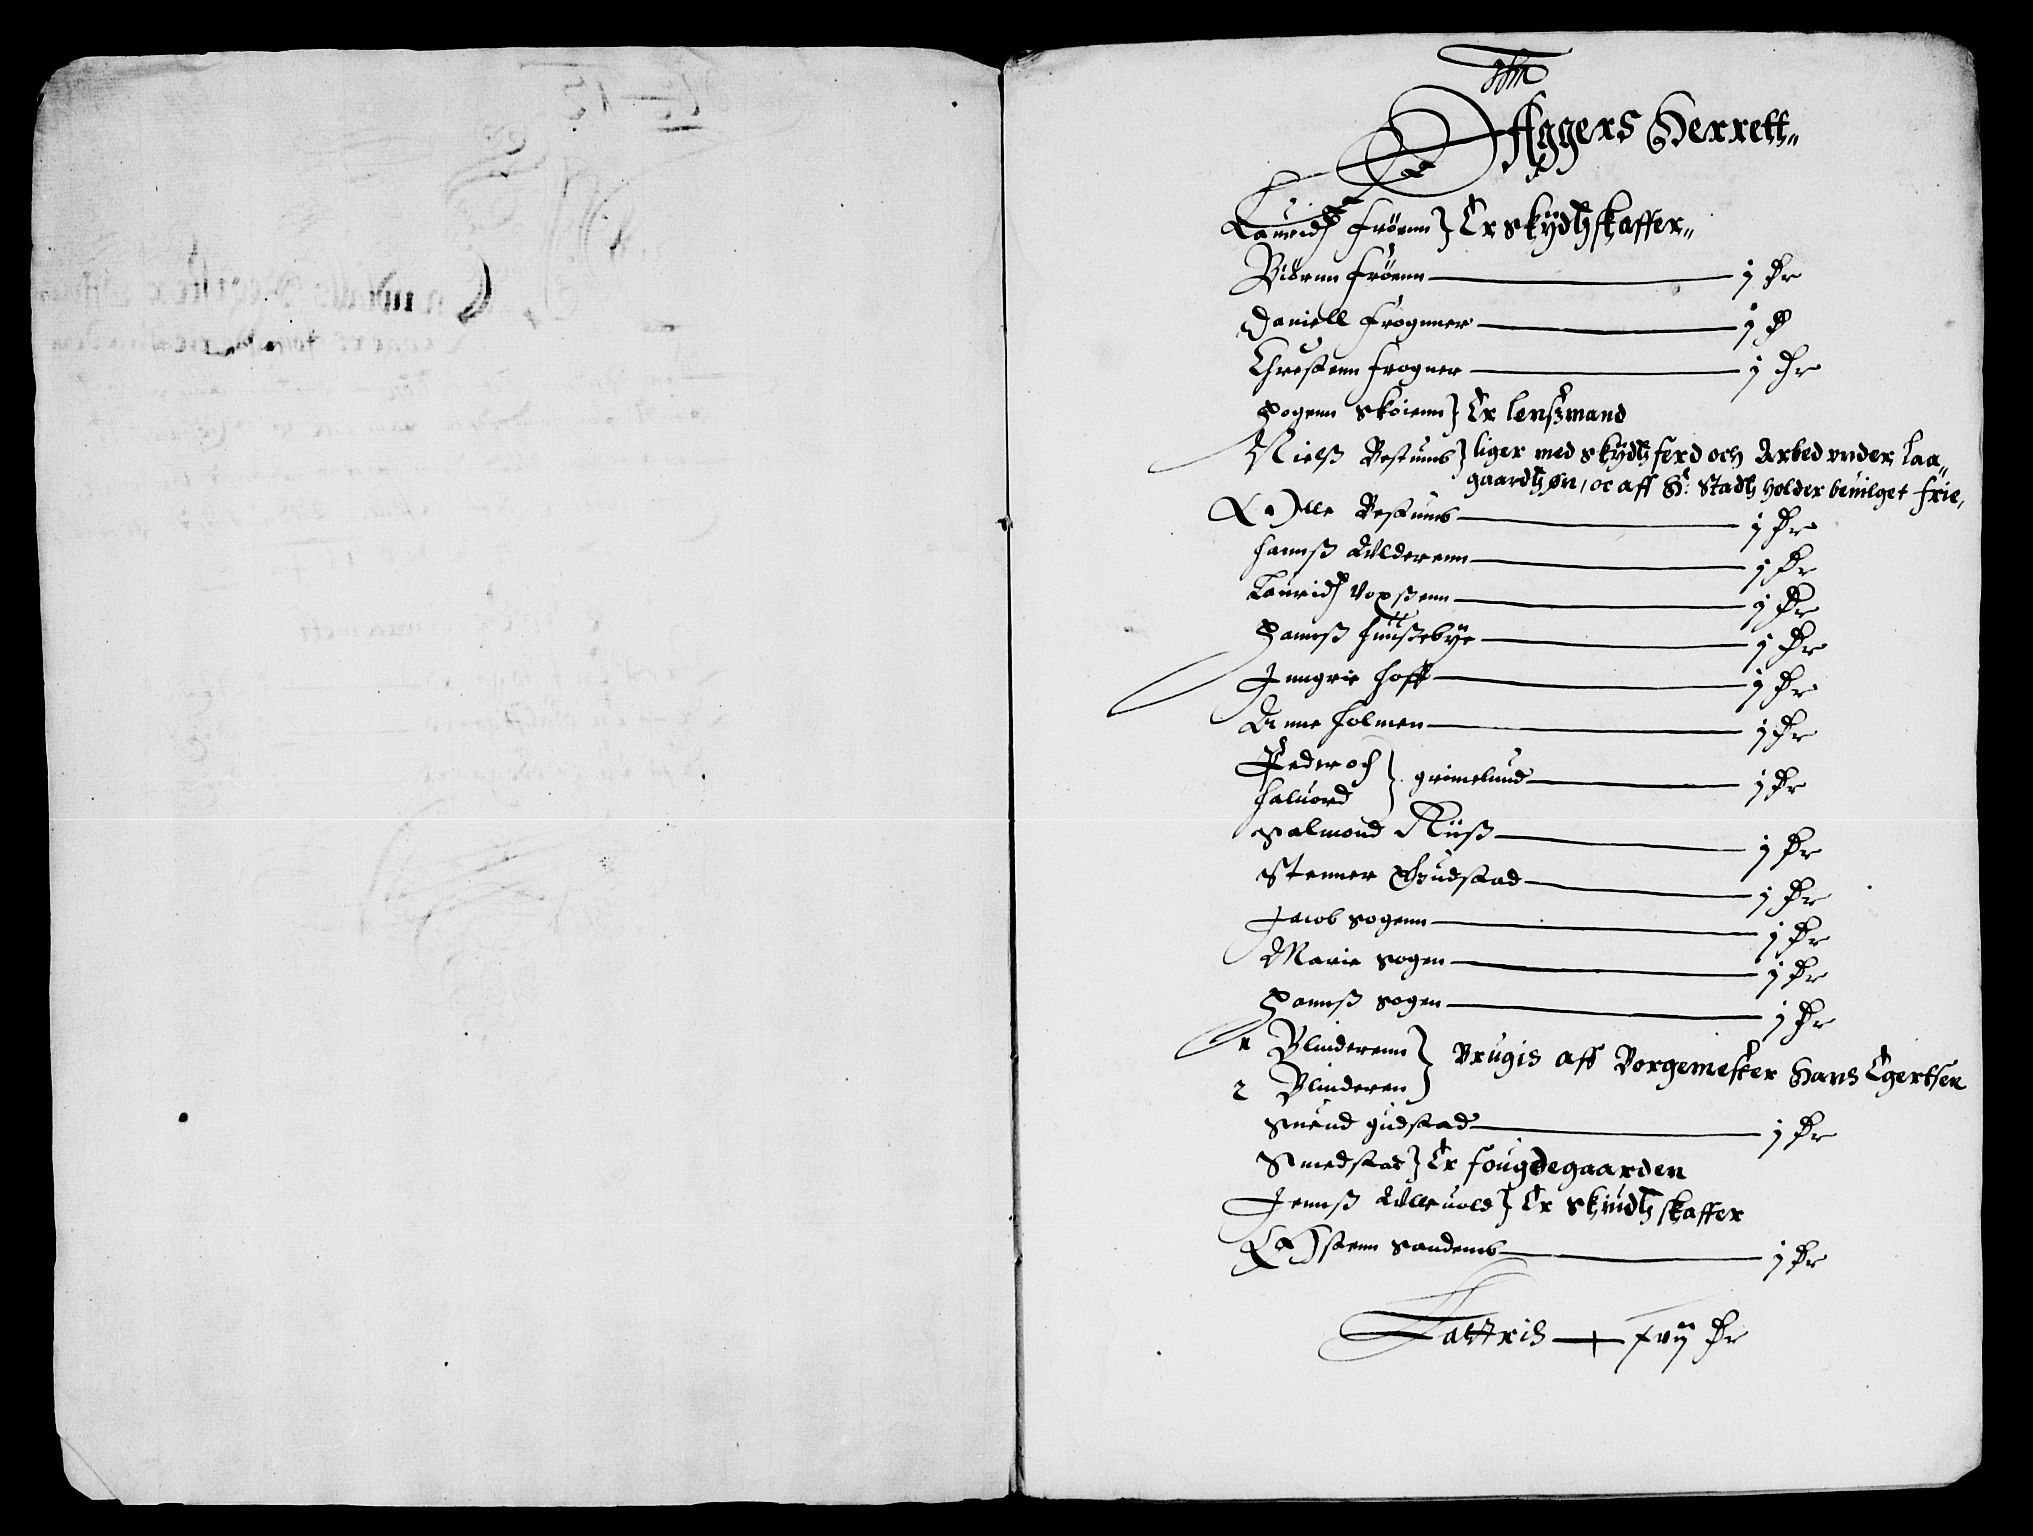 Aggers Herrett
Lauridtz Frøenn } Er skydtzskaffer
Biørnn Frøenn — j dr
Daniell Frognner — j d
Chrestenn Frogner — j dr
Hogenn Skøienn } Er lenssmand
Nielss Bestumb } liger med skydtzferd och Arbed vnder Laa-
gaardtzøn, oc aff Hr: Stadtholder beuilget frie,
Kalle Bestumb — j dr
Hannss Ullderenn — j dr
Lauridtz Voxssenn — j dr
Hannss Hussebye — j dr
Jnngrie Hoff — j dr
Anne Holmen — j dr
Peder och
Haluord } grimelund — j dr
Salmond Riiss — j dr
Stenner Gudstad — j dr
Jacob Sogenn — j dr
Marie Sogen — j dr
Hannss Sogen — j dr
1 Blinderenn
2 Blinderen } Brugis aff Borgemester Hans Egertsen
Suend gudstad — j dr
Smedstad } Er fougdegaarden
Jennss Ulleuold } Er Skiudtz skaffer
Kastenn Sandemb — j dr
Lattris — xvij dr